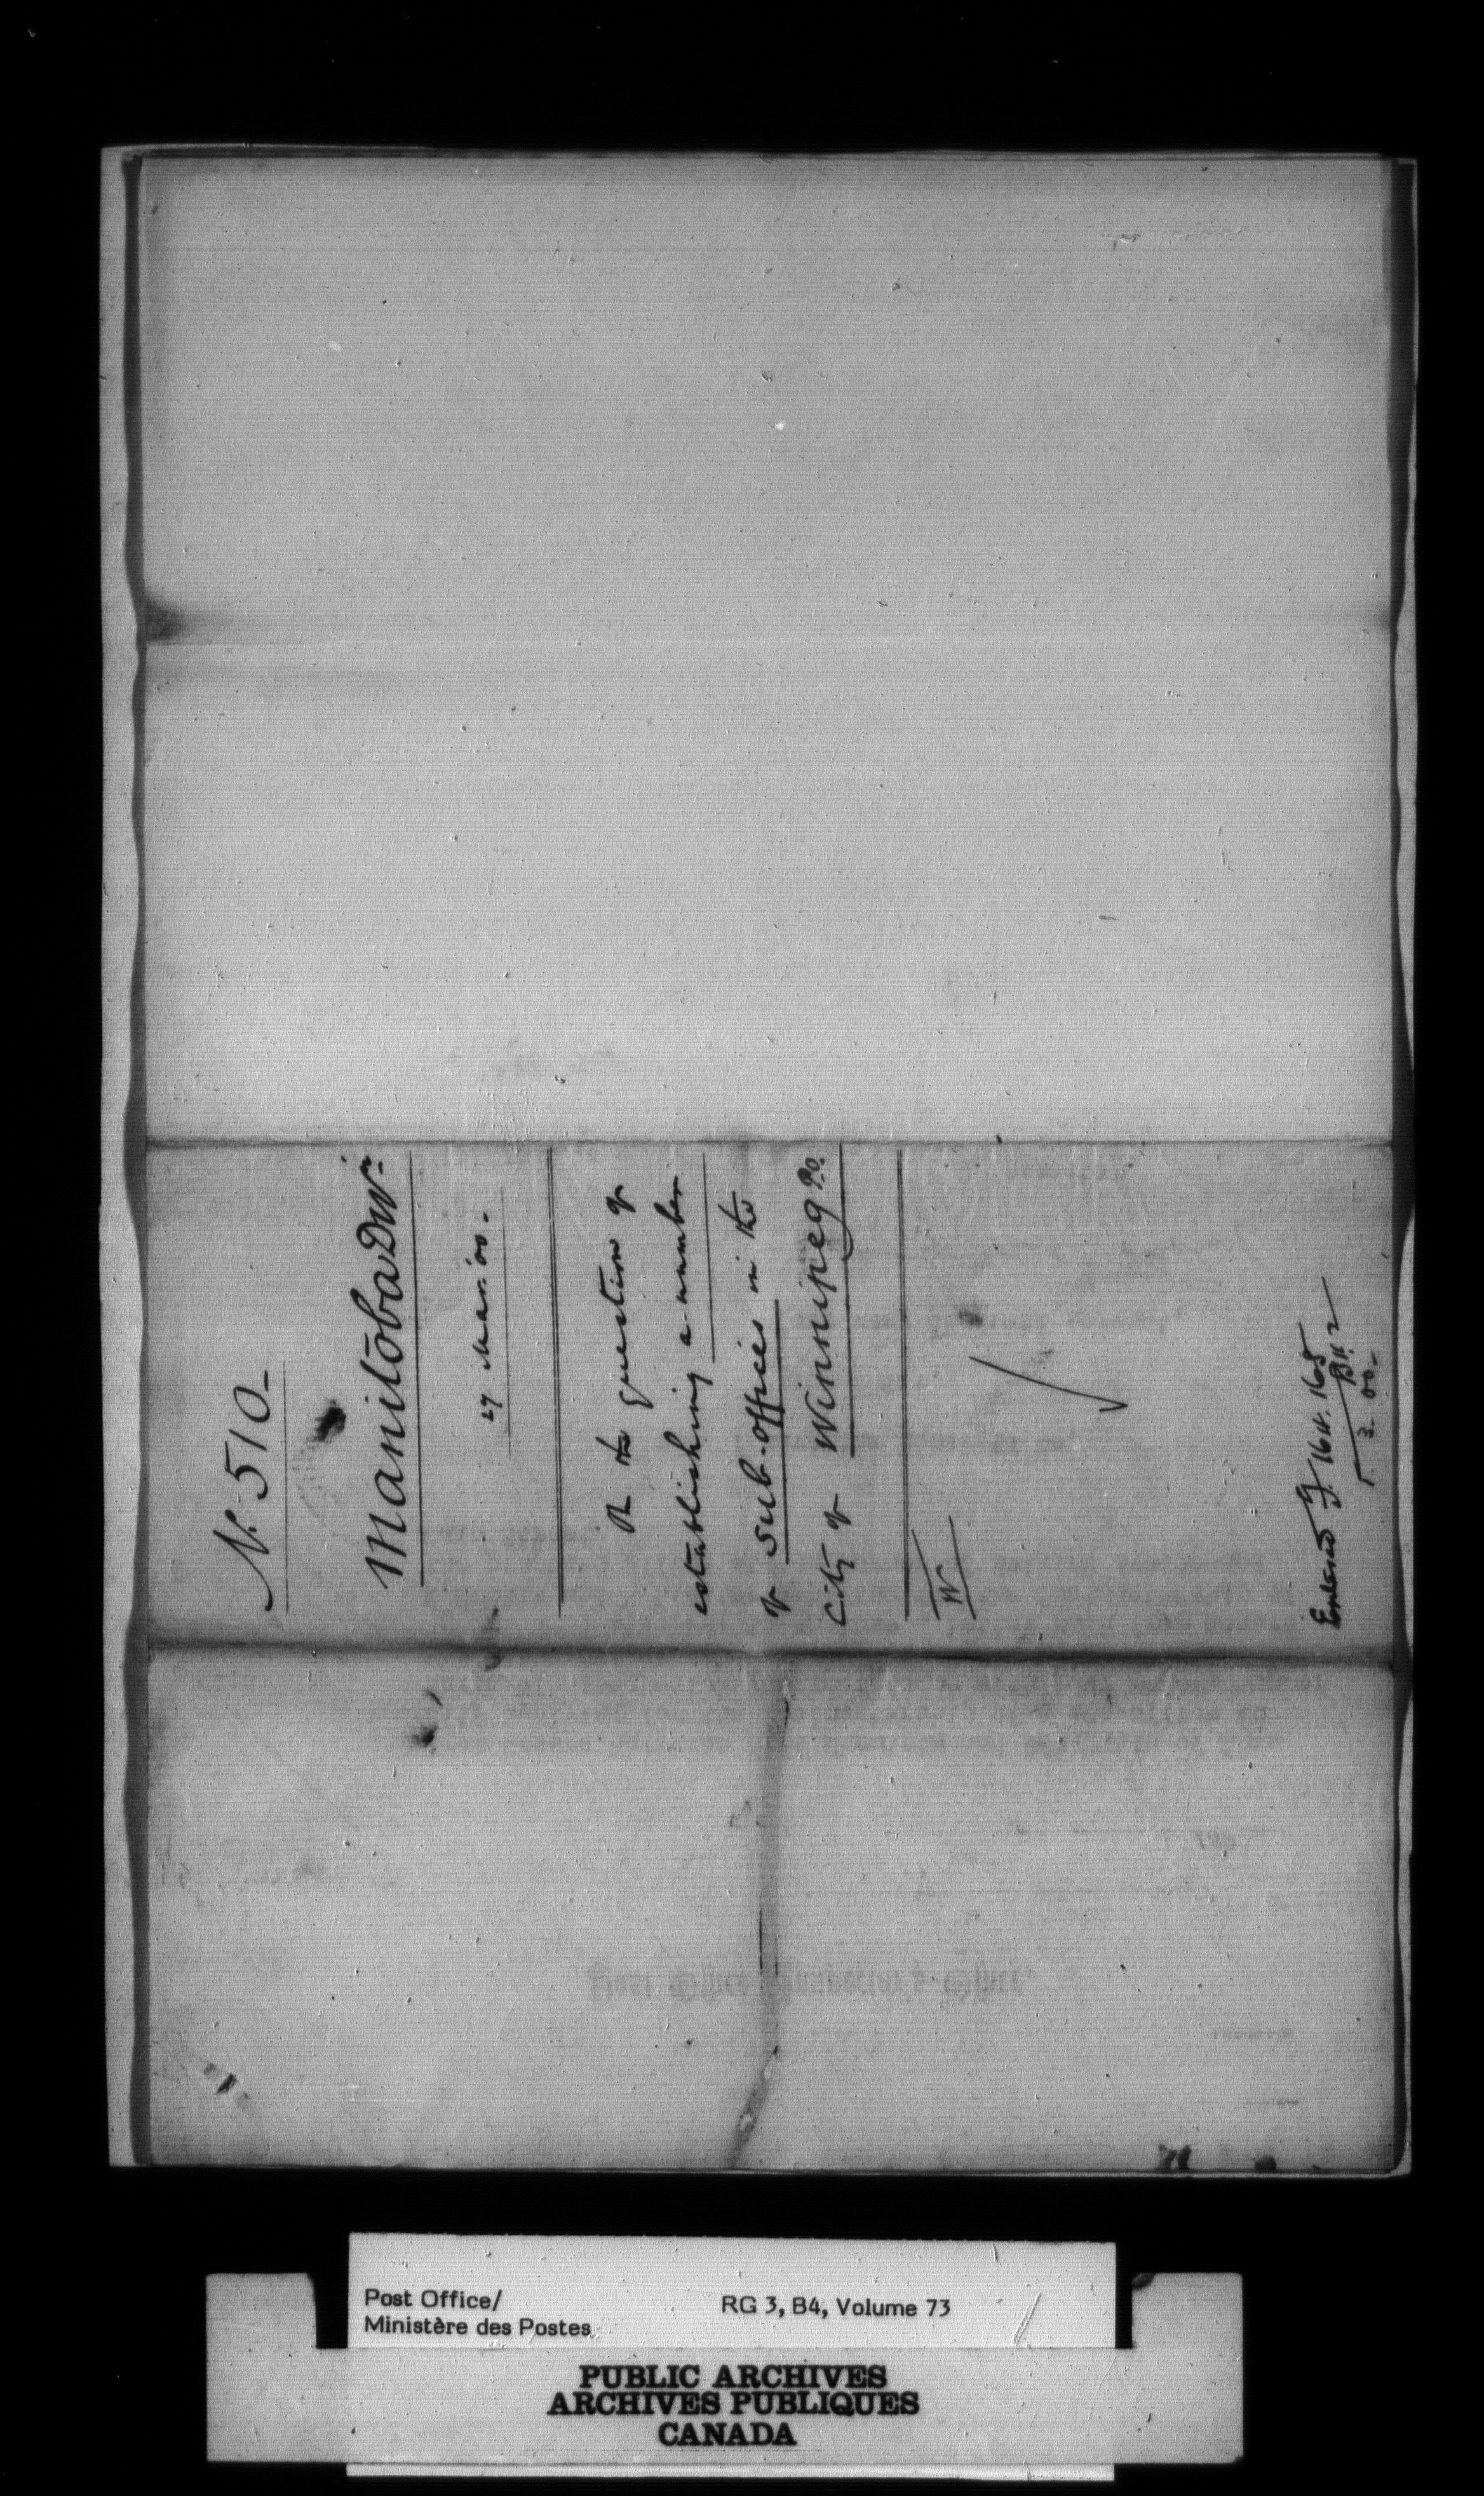 N. 510
Manitoba DWn.
27 Mar. '00.
R the question of
establishing a number
of sub-offices in the
City of Winnipeg P.O.
W
Entered J. 164. 165
Bk 2
1. 3. 00
Post Office/
Ministère des Postes
RG 3, B4, Volume 73
PUBLIC ARCHIVES
ARCHIVES PUBLIQUES
CANADA